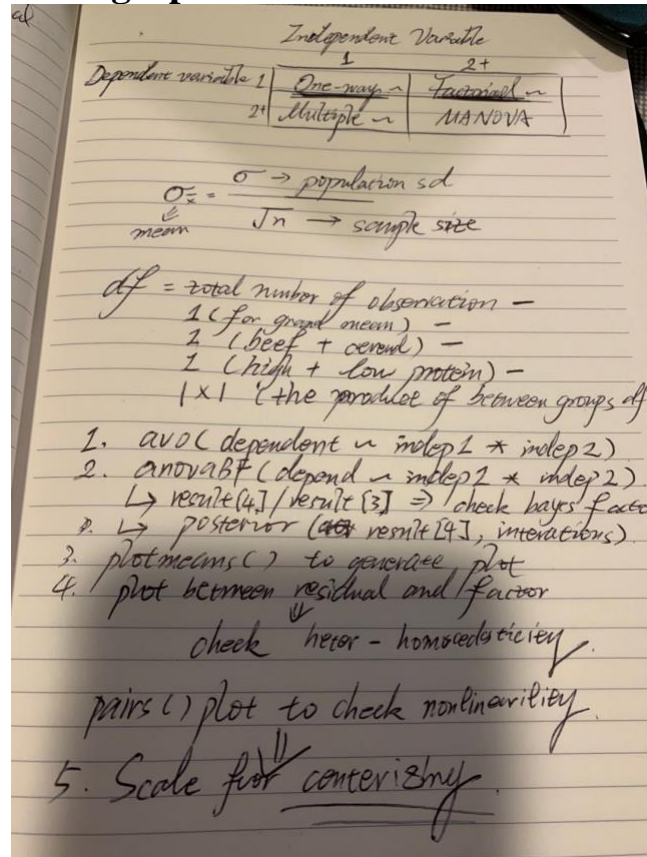 Independent Variable
1 2+
Dependent variable 1 One-way ~ Factorial ~
2+ Multiple ~ MANOVA
σx̄ = σ → population sd
mean √n → sample size
df = total number of observation -
1 (for grand mean) -
1 (beef + cereal) -
1 (high + low protein) -
1 x 1 (the product of between groups df
1. avo( dependent ~ indep1 * indep2)
2. anovaBF (depend ~ indep1 * indep2)
↳ result[4] / result[3] ⇒ check bayes facto
↳ posterior (result[4], interations).
3. plotmeans() to generate plot
4. plot between residual and factor
⇓
check heter - homocedasticiey
pairs() plot to check nonlinearility
⇓
5. Scale for centerising